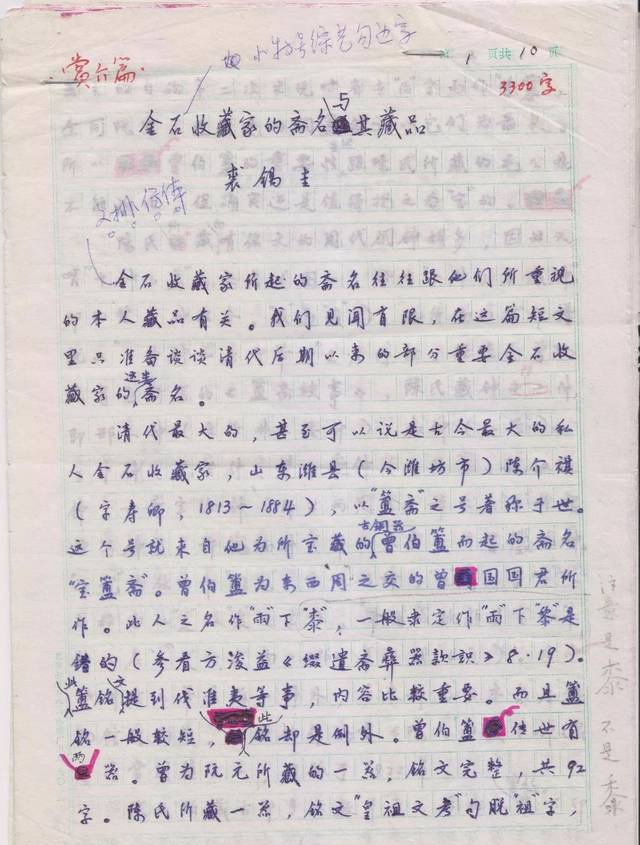 小标号综艺勾边字
第 1 页共 10 页
赏介篇
3300字
金石收藏家的斋名与其藏品
裘锡圭
金石收藏家所起的斋名往往跟他们所重视
的本人藏品有关。我们见闻有限，在这篇短文
里只准备谈谈清代后期以来的部分重要金石收
藏家的这类斋名。
清代最大的，甚至可以说是古今最大的私
人金石收藏家，山东潍县（今潍坊市）陈介祺
（字寿卿，1813～1884），以“簠斋”之号著称于世。
这个号就来自他为所宝藏的古铜器曾伯簠而起的斋名
“宝簠斋”。曾伯簠为东西周之交的曾国国君所
作。此人之名作“雨”下“桼”，一般隶定作“雨”下“黍”是
错的（参看方浚益《缀遗斋彝器款识》8·19）。
此簠铭文提到伐淮夷等事，内容比较重要。而且簠
铭一般较短，此铭却是例外。曾伯簠传世有
两器。曾为阮元所藏的一器，铭文完整，共92
字。陈氏所藏一器，铭文“皇祖文考”句脱“祖”字，
注意是桼 不是黍